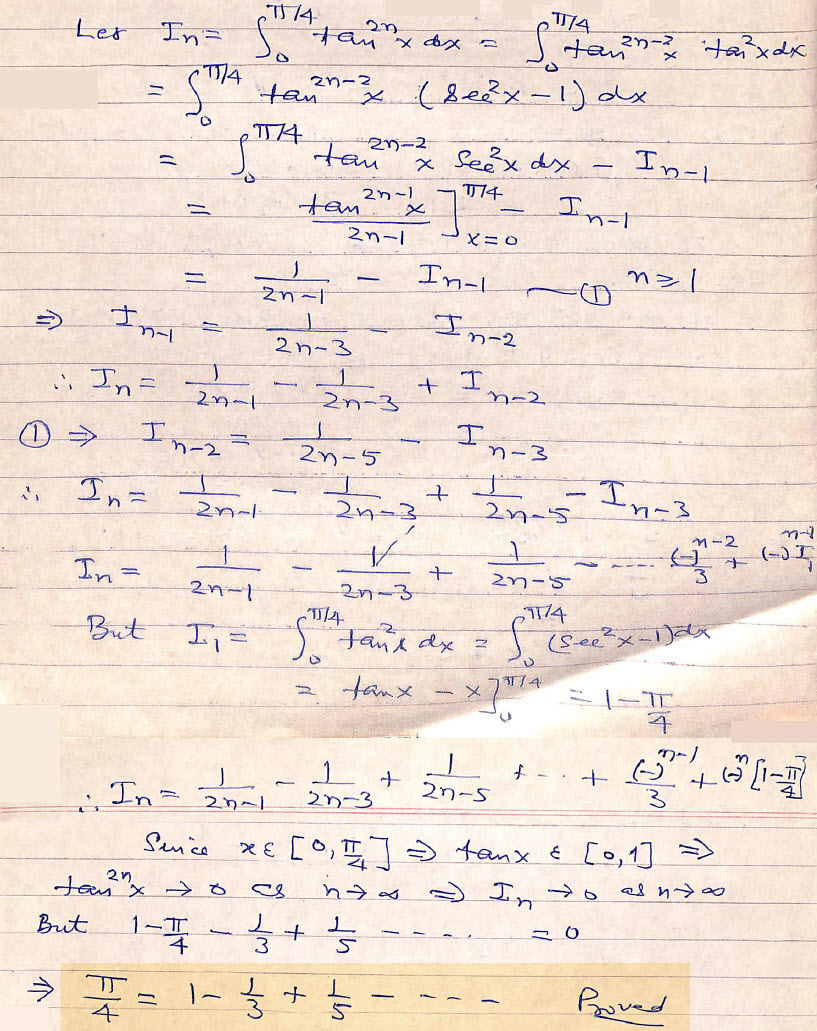 Let Iₙ = ∫₀^{π/4} tan²ⁿ x dx = ∫₀^{π/4} tan²ⁿ⁻² x tan² x dx
= ∫₀^{π/4} tan²ⁿ⁻² x (sec² x − 1) dx
= ∫₀^{π/4} tan²ⁿ⁻² x sec² x dx − Iₙ₋₁
= tan²ⁿ⁻¹ x / (2n−1) ]_{x=0}^{π/4} − Iₙ₋₁
= 1/(2n−1) − Iₙ₋₁ — ① n ≥ 1
⇒ Iₙ₋₁ = 1/(2n−3) − Iₙ₋₂
∴ Iₙ = 1/(2n−1) − 1/(2n−3) + Iₙ₋₂
① ⇒ Iₙ₋₂ = 1/(2n−5) − Iₙ₋₃
∴ Iₙ = 1/(2n−1) − 1/(2n−3) + 1/(2n−5) − Iₙ₋₃
Iₙ = 1/(2n−1) − 1/(2n−3) + 1/(2n−5) − ---- (−)ⁿ⁻²/3 + (−)ⁿ⁻¹ I₁
But I₁ = ∫₀^{π/4} tan² x dx = ∫₀^{π/4} (sec² x − 1) dx
= tan x − x ]₀^{π/4} = 1 − π/4
∴ Iₙ = 1/(2n−1) − 1/(2n−3) + 1/(2n−5) + - - - + (−)ⁿ⁻¹/3 + (−)ⁿ [1 − π/4]
Since x ε [0, π/4] ⇒ tan x ε [0, 1] ⇒
tan²ⁿ x → 0 as n → ∞ ⇒ Iₙ → 0 as n → ∞
But 1 − π/4 − 1/3 + 1/5 − - - - . = 0
⇒ π/4 = 1 − 1/3 + 1/5 − - - - - Proved